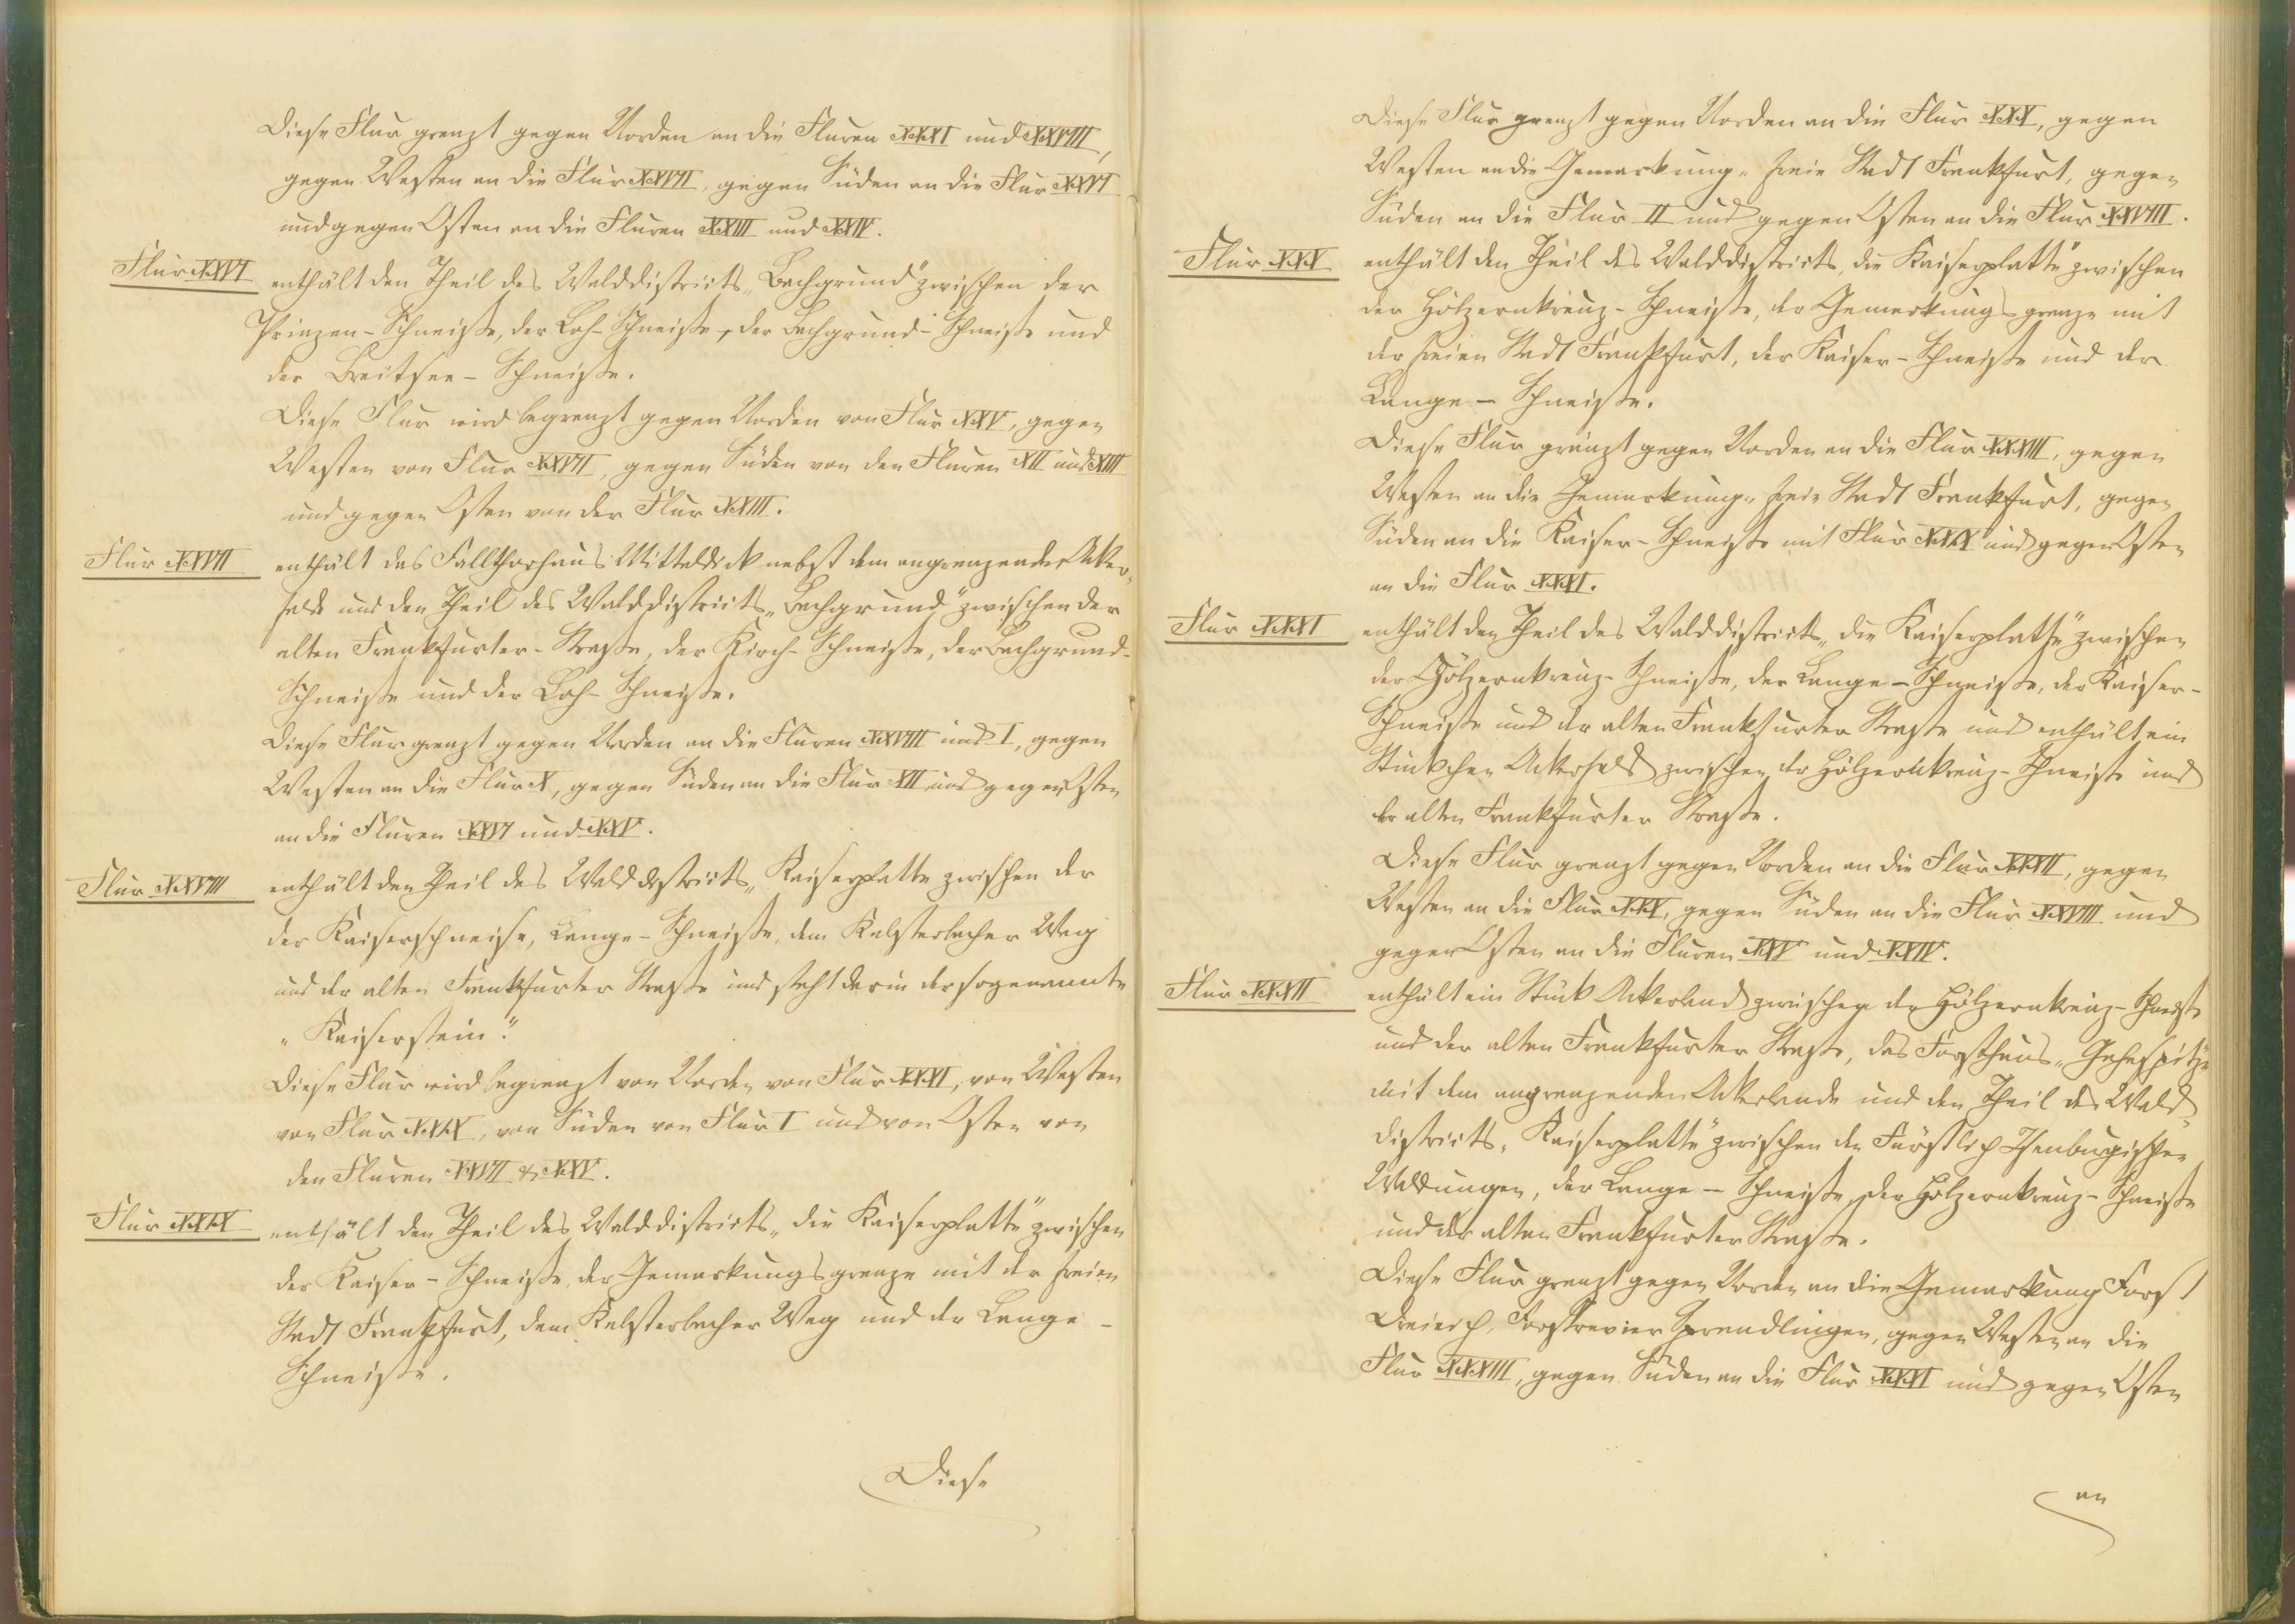 Diese Flur grenzt gegen Norden an die Fluren XXXI und XXVIII,
gegen Westen an die Flur XXVII, gegen Süden an die Flur XXVI
und gegen Osten an die Fluren XXIII und XXIV.
Flur XXVI enthält den Theil des Walddistricts „Bachgrund" zwischen der
Prinzen-Schneiße, der Loh-Schneiße, der Bachgrund-Schneiße und
der Breitsee-Schneiße.
Diese Flur wird begrenzt gegen Norden von Flur XXV, gegen
Westen von Flur XXVII, gegen Süden von den Fluren XII und XIII
und gegen Osten von der Flur XXIII.
Flur XXVII enthält das Fallthorhaus Mitteldick nebst dem angrenzenden Acker-
felde und den Theil des Walddistricts „Bachgrund" zwischen der
alten Frankfurter-Straße, der Kirch-Schneiße, der Bachgrund-
Schneiße und der Loh-Schneiße.
Diese Flur grenzt gegen Norden an die Fluren XXVIII und I, gegen
Westen an die Flur X, gegen Süden an die Flur XII und gegen Osten
an die Fluren XXVI und XXV.
Flur XXVIII enthält den Theil des Walddistricts „Kaiserplatte zwischen der
der Kaiserschneise, Lange-Schneiße, dem Kelsterbacher Weg
und der alten Frankfurter Straße und steht darin der sogenannte
„Kaiserstein".
Diese Flur wird begrenzt von Norden von Flur XXXI, von Westen
von Flur XXIX, von Süden von Flur I und von Osten von
den Fluren XXVII & XXV.
Flur XXIX enthält den Theil des Walddistricts „die Kaiserplatte" zwischen
der Kaiser-Schneiße, der Gemarkungsgrenze mit der freien
Stadt Frankfurt, dem Kelsterbacher Weg und der Lange-
Schneiße.
Diese
Diese Flur grenzt gegen Norden an die Flur XXX, gegen
Westen an die Gemarkung „freie Stadt Frankfurt, gegen
Süden an die Flur II und gegen Osten an die Flur XXVIII.
Flur XXX enthält den Theil des Walddistricts „die Kaiserplatte" zwischen
der Hölzernkreuz-Schneiße, der Gemarkungsgrenze mit
der freien Stadt Frankfurt, der Kaiser-Schneiße und der
Lange-Schneiße.
Diese Flur grenzt gegen Norden an die Flur XXXIII, gegen
Westen an die Gemarkung „freie Stadt Frankfurt, gegen
Süden an die Kaiser-Schneiße mit Flur XXIX und gegen Osten
an die Flur XXXI.
Flur XXXI enthält den Theil des Walddistricts „die Kaiserplatte" zwischen
der Hölzernkreuz-Schneiße, der Lange-Schneiße, der Kaiser-
Schneiße und der alten Frankfurter Straße und enthält ein
Stückchen Ackerfeld zwischen der Hölzernkreuz-Schneiße und
der alten Frankfurter Straße.
Diese Flur grenzt gegen Norden an die Flur XXXII, gegen
Westen an die Flur XXX, gegen Süden an die Flur XXVIII und
gegen Osten an die Fluren XXV und XXIV.
Flur XXXII enthält ein Stück Ackerland zwischen der Hölzernkreuz-Schneiße
und der alten Frankfurter Straße, das Forsthaus „Gehespitz"
mit dem angrenzenden Ackerlande und den Theil des Wald-
districts „Kaiserplatte" zwischen den Fürstlich Isenburgischen
Waldungen, der Lange-Schneiße, der Hölzernkreuz-Schneiße
und der alten Frankfurter Straße.
Diese Flur grenzt gegen Norden an die Gemarkung Forst
Dreieich, Forstrevier Sprendlingen, gegen Westen an die
Flur XXXIII, gegen Süden an die Flur XXXI und gegen Osten
an